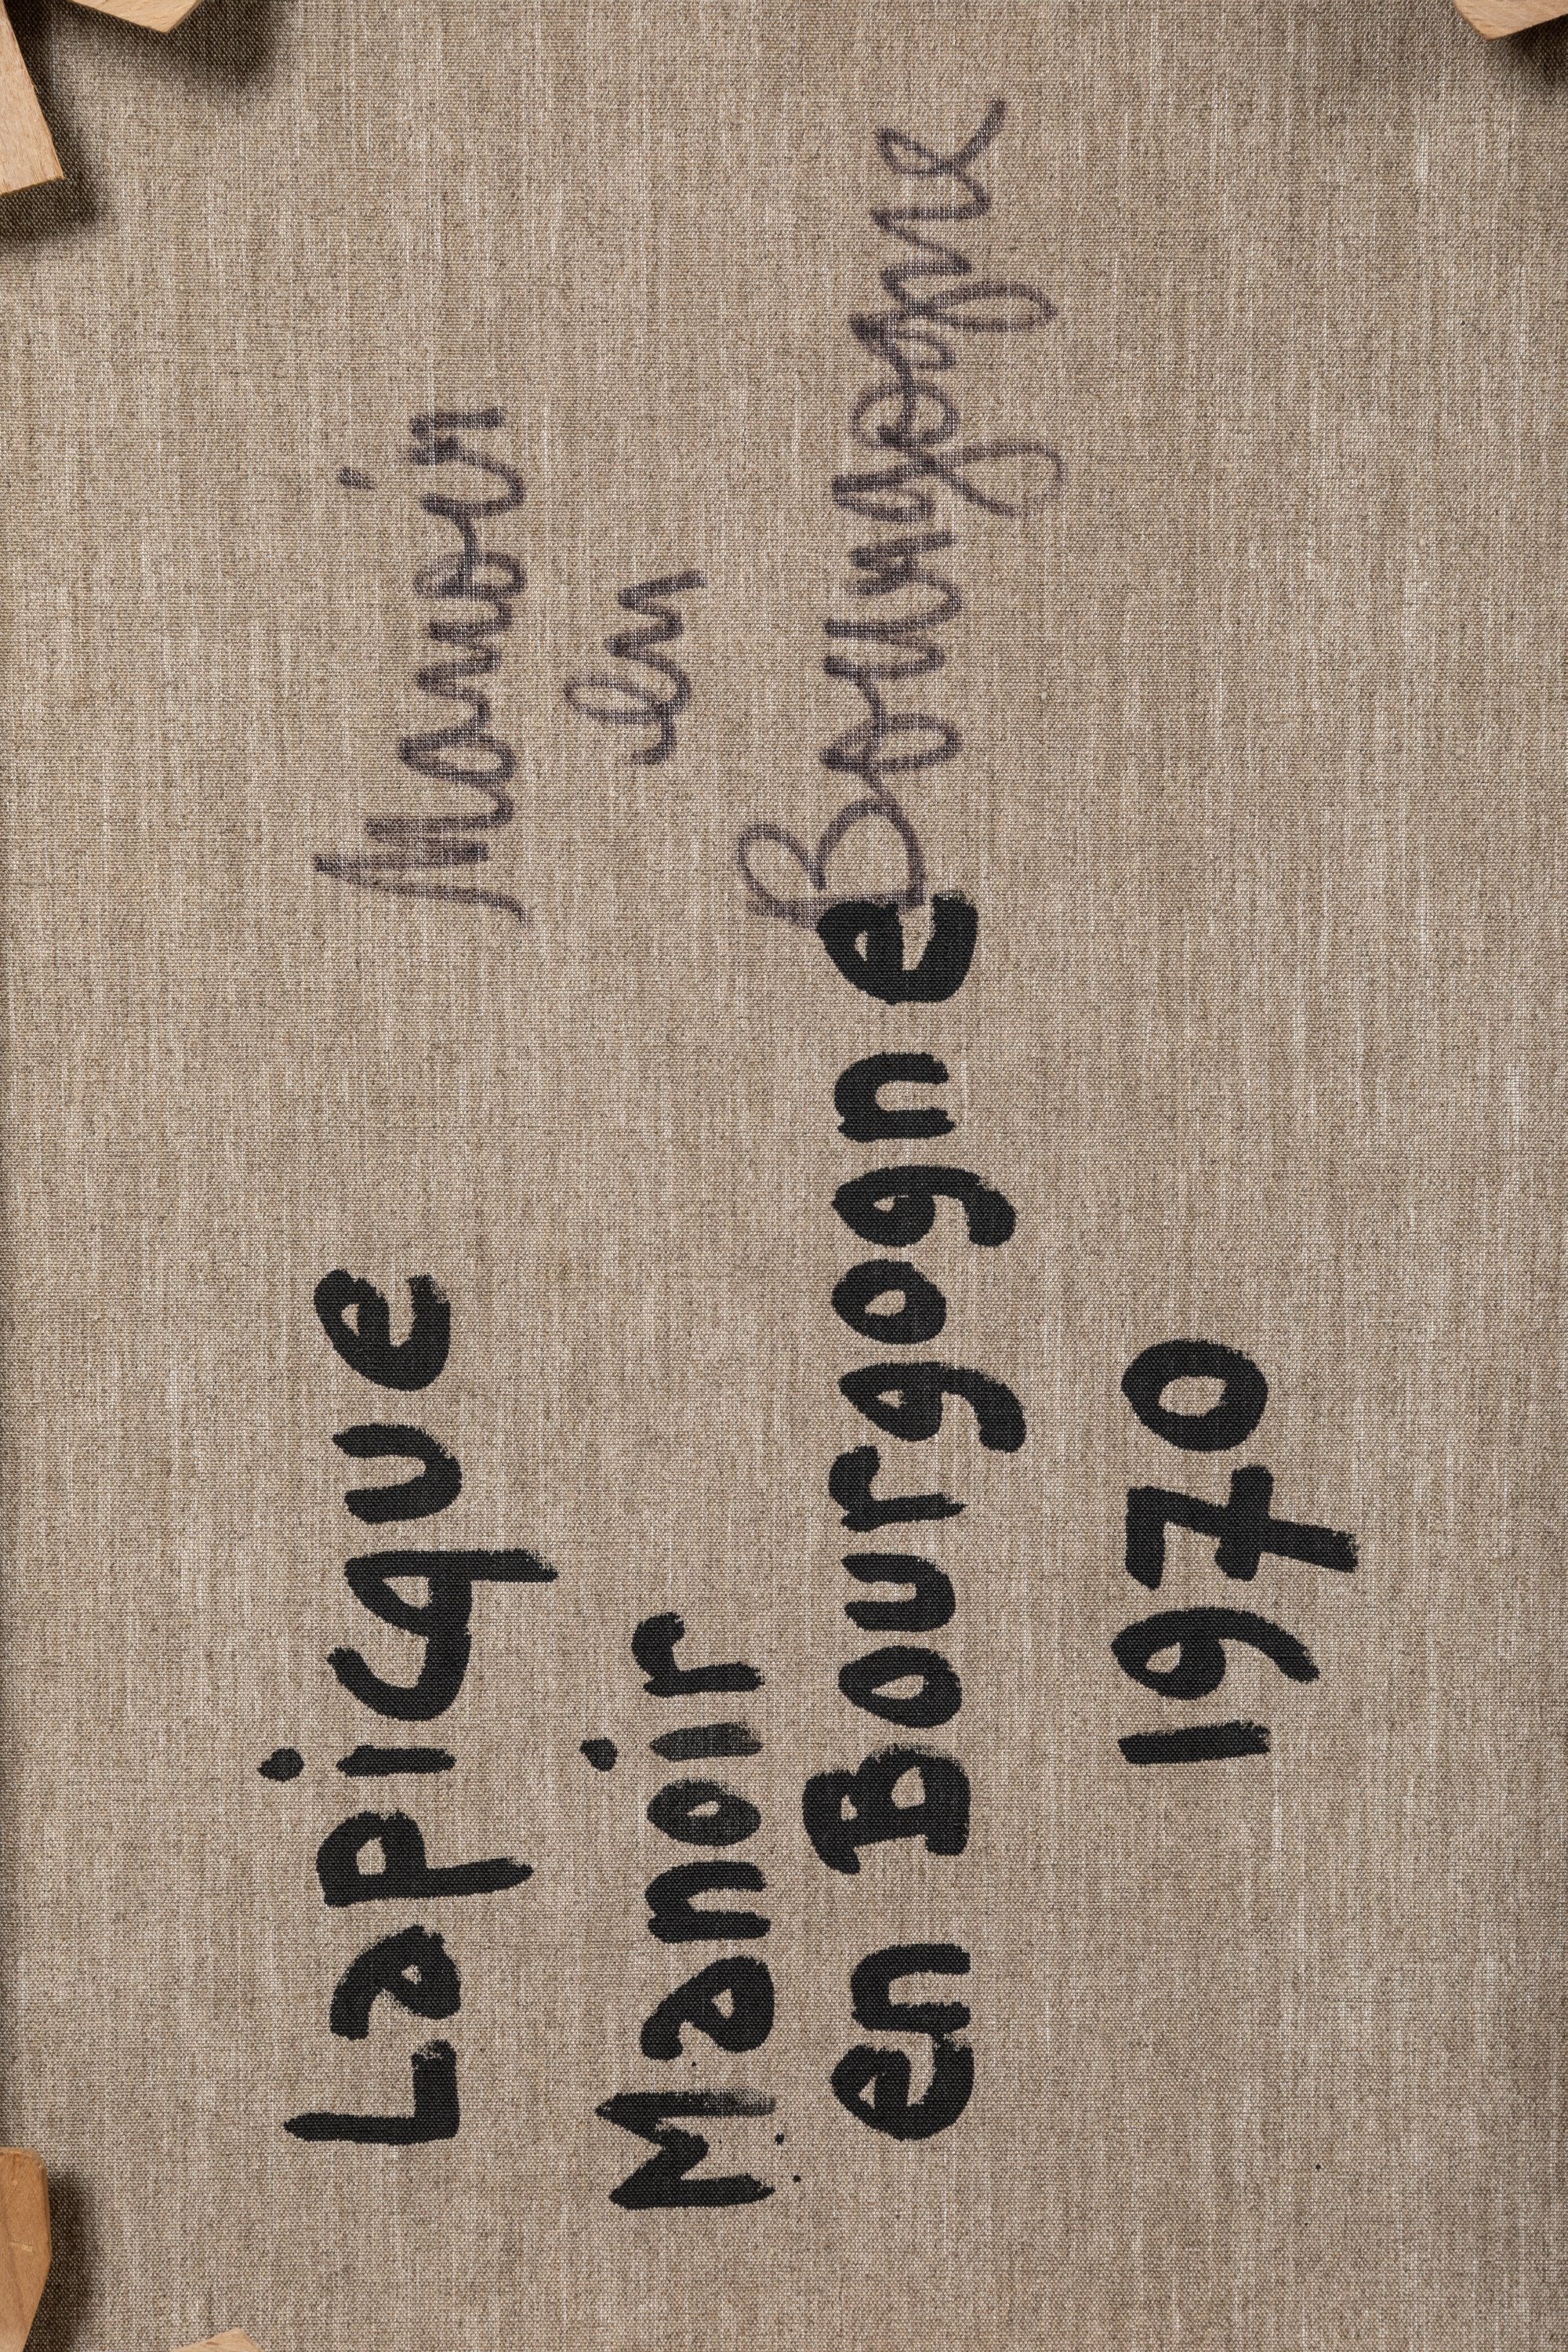 Lapicque
Manoir
en Bourgogne
1970
Manoir
en
Bourgogne